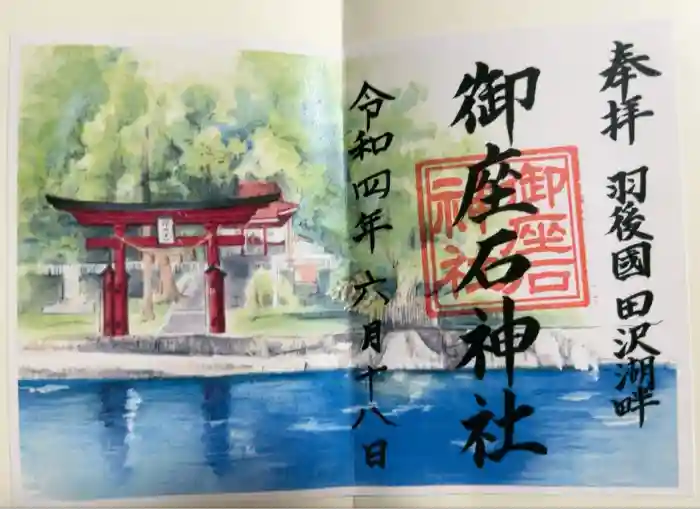 奉拝
羽後國田沢湖畔
御座石神社
御座石
神社
令和四年六月十八日